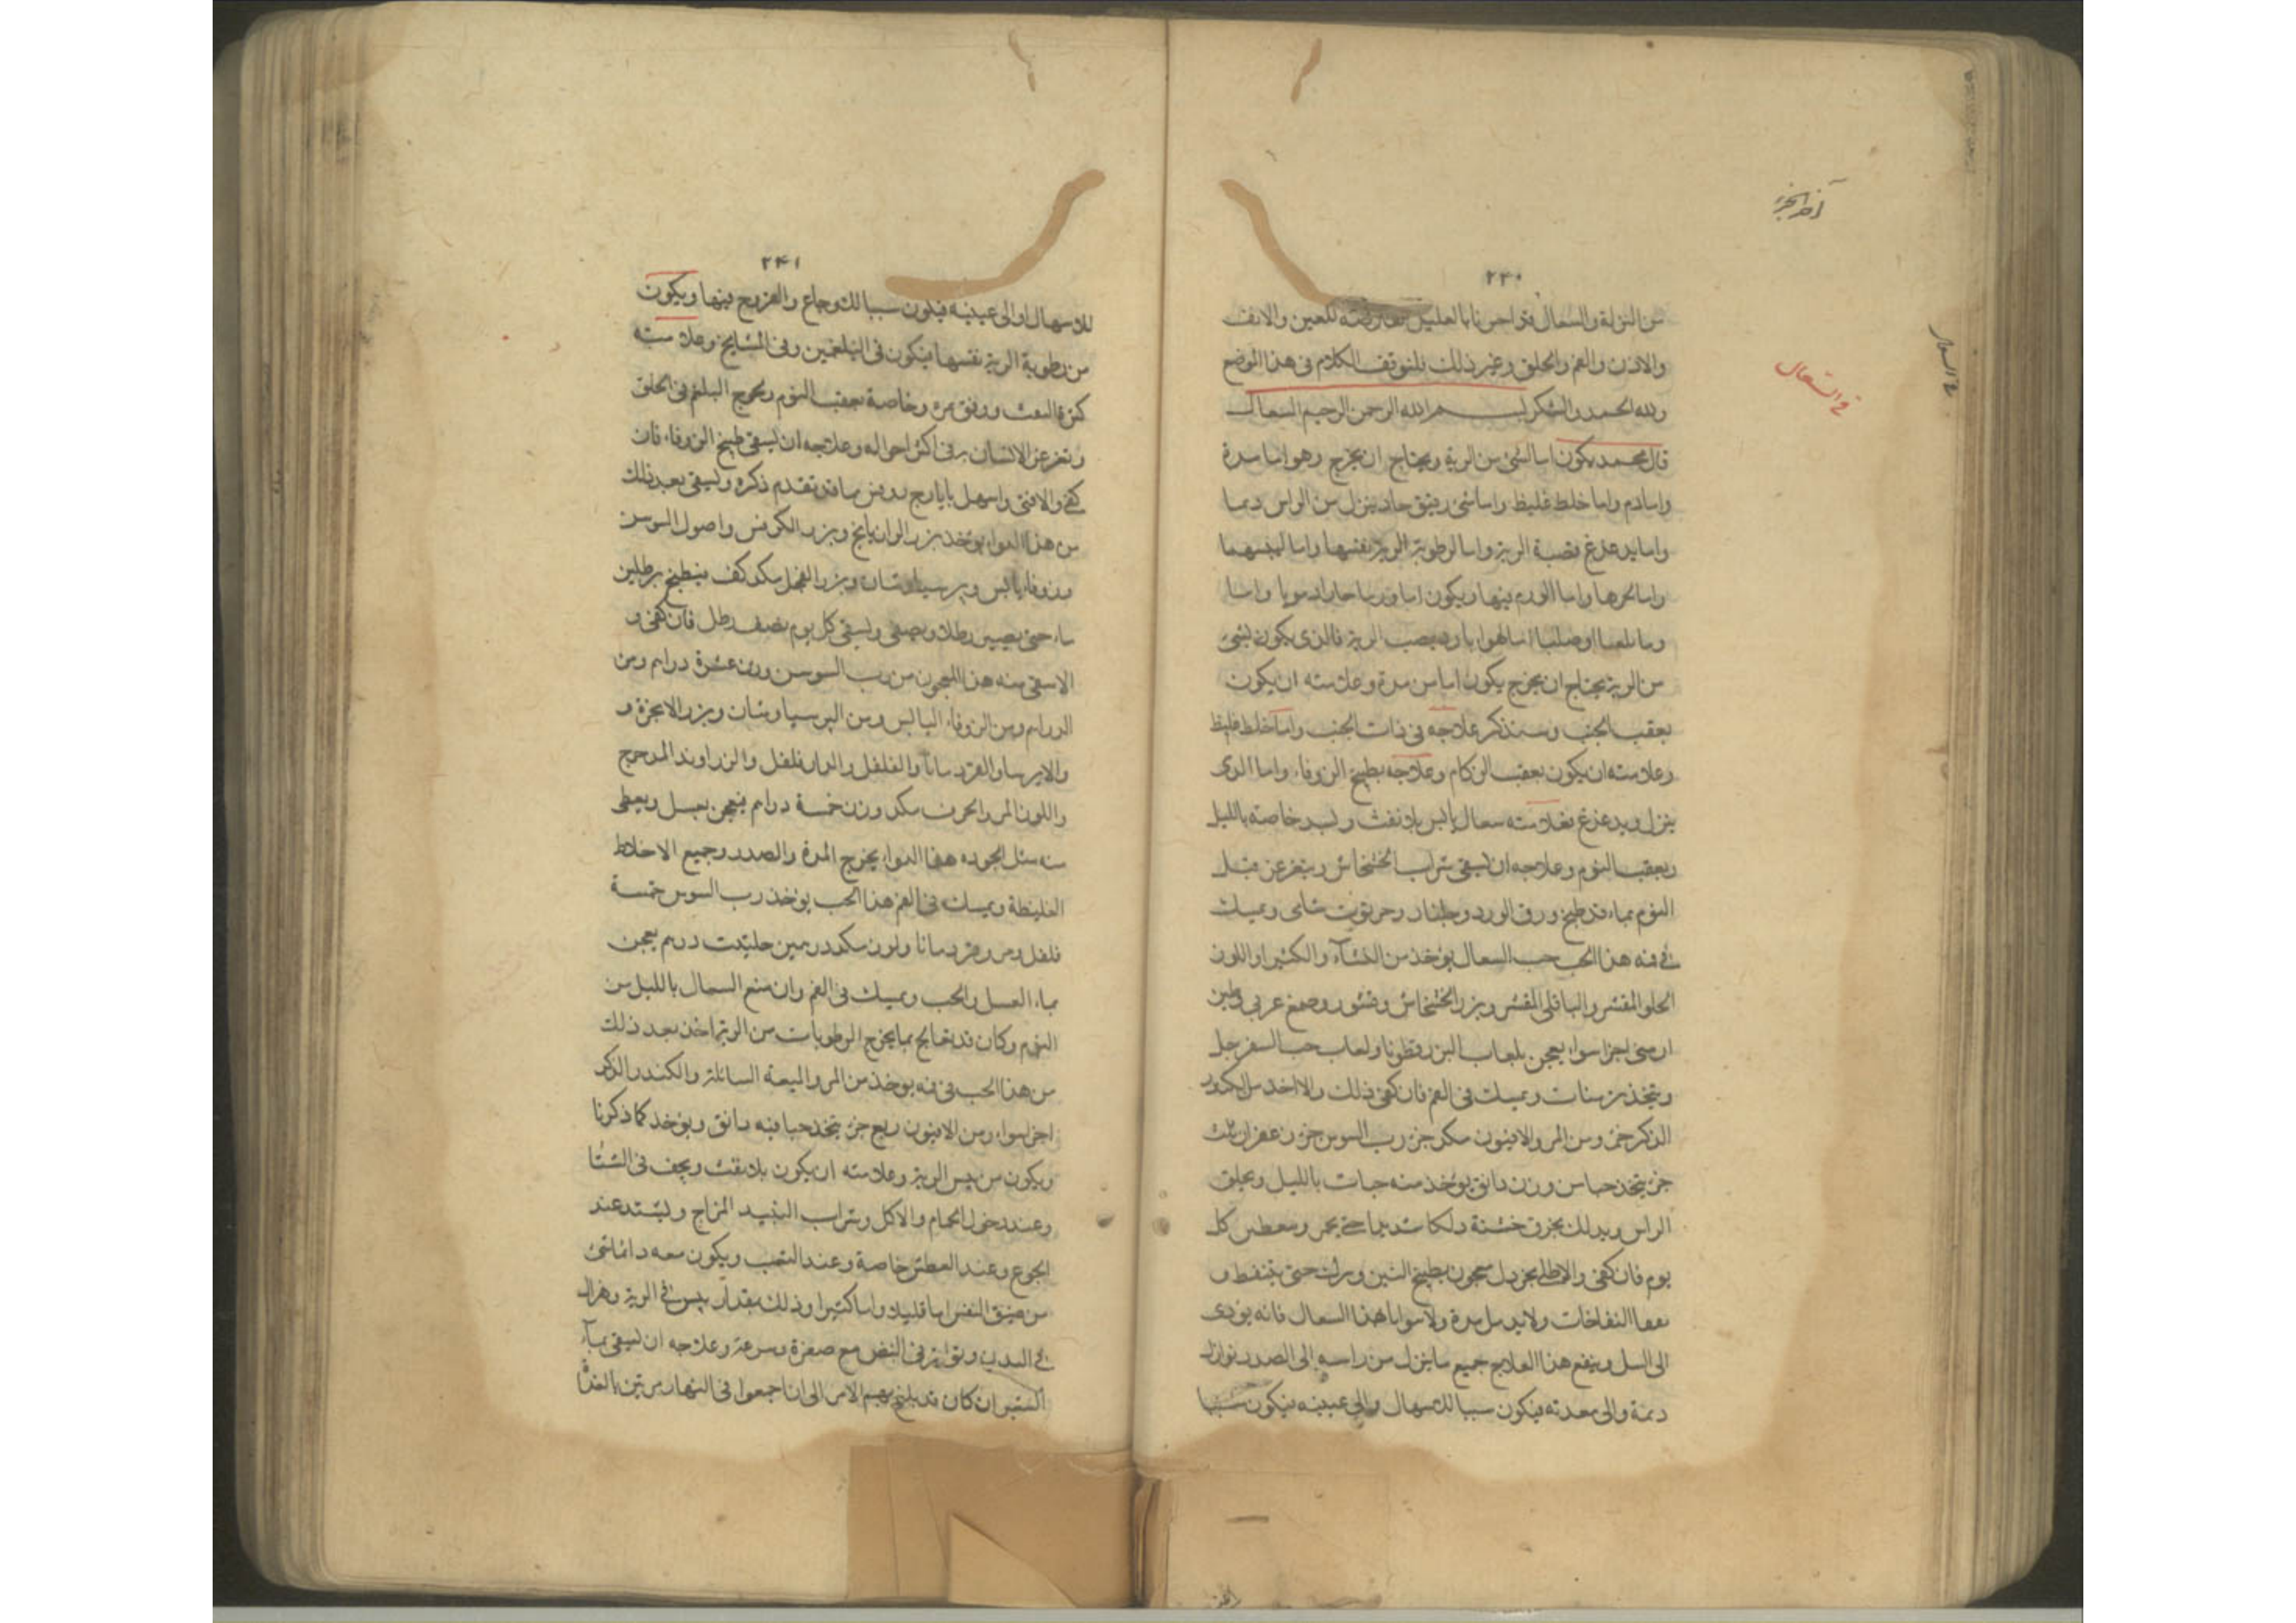 آخر الجزء
٢٤٠
من النزلة والسعال فقد اخبرنا بالعليل للعين والانف
والاذن والفم والحلق وغير ذلك فلنوقف الكلام فى هذا الموضع
ولله الحمد والشكر بسم الله الرحمن الرحيم السعال
قال محمد يكون اما لشئ من الرية ويحتاج ان يخرج وهو اما مدة
واما دم واما خلط غليظ واما شئ رقيق حاد ينزل من الراس دبما
واما يدغدغ قصبة الرية واما لرطوبة الرية نفسها واما ليبسهما
واما لحرها واما لورم فيها ويكون اما ورما حارا دمويا واما
ورما بلغميا او صلبا اما لهوا بارد يصيب الرية فالذى يكون لشئ
من الرية يحتاج ان يخرج يكون اما من مدة وعلامته ان يكون
بعقب الجنب وسنذكر علاجه فى ذات الجنب واما خلط غليظ
وعلامته ان يكون بعقب الزكام وعلاجه بطبيخ الزوفاء واما الذى
ينزل ويدغدغ فعلامته سعال يابس بلا نفث خاصة بالليل
وبعقب النوم وعلاجه ان يسقى شراب الخشخاش ويتغرغر قبل
النوم بماء قد طبخ ورق الورد وجلنار وخرنوب شامى ويمسك
فى فمه هذا الحب حب السعال يؤخذ من النشآء والكثيرا واللوز
الحلو المقشر والباقلى المقشر وبزر الخشخاش وقشور وصمغ عربى وطين
ارمنى اجزا سوا يعجن بلعاب البزر قطونا ولعاب حب السفرجل
ويتخذ ويمسك فى الفم فان كفى ذلك والا اخذ من الكندر
الذكر جزء ومن المر والافيون مكد جزء رب السوس جزء زعفران ثلث
جزء يتخذ حبا من وزن دانق يؤخذ منه حبات بالليل ويحلق
الراس ويدلك بخرق خشنة دلكا شديدا حتى يحمر ومعطس كل
يوم فان كفى والا طلى بخردل معجون بطبيخ التين وترك حتى يتنفط و
النفاخات ولا هذا السعال فانه يؤدى
الى السل وينفع هذا العلاج جميع ما ينزل من راسه الى الصدر نوازل
دمة والى معدته فيكون سببا للاسهال والى عينيه فيكون سببا
فى السعال
فى السعال
٢٤١
للاسهال او الى عينيه فيكون سببا للاوجاع والقروح فيها ويكون
من رطوبة الرية نفسها فيكون فى البلغمين وفى المشايخ وعلامته
كثرة النفث وخاصة بعقب النوم ويخرج البلغم فى الحلق
الانسان فى اكثر احواله وعلاجه ان يسقى طبيخ الزوفاء فان
كفى والا فتق واسهل بايارج ما قد تقدم ذكره ويسقى بعد ذلك
من هذا الدواء يؤخذ بزر الرازيانج وبزر الكرفس واصول السوسن
وزوفاء يابس وبرسياوشان وبزر الفجل مكد كف فيطبخ برطلين
ماء حتى يصير رطلا ويصفى ويسقى كل يوم نصف رطل فان كفى و
الا سقى منه هذا المعجون من رب السوسن وزن عشرة درام ومن
الدرام ومن الزوفاء اليابس ومن البرسياوشان وبزر الانجرة و
والايرسا والقردمانا والفلفل والدارفلفل والزراوند المدحرج
واللوز المر والحرف مكد وزن خمسة درام فيعجن بعسل ويعطى
منه مثل الجوزه هذا الدواء يخرج المدة والصدر وجميع الاخلاط
الغليظة ويمسك فى الفم هذا الحب يؤخذ رب السوس خمسة
فلفل ومر وقردمانا ولوز مكد درهمين حلتيت درم يعجن
بماء العسل والحب ويمسك فى الفم وان منع السعال بالليل من
النوم وكان قد تعالج بما يخرج الرطوبات من الرية اخذ بعد ذلك
من هذا الحب فى فمه يؤخذ من المر والميعة السائلة والكندر الذكر
اجزا سوا ومن الافيون ربع جزء يتخذ حبا فيه دانق ويؤخذ كما ذكرنا
ويكون من يبس الرية وعلامته ان يكون بلا نفث ويخف فى الشتا
وعند دخول الحمام والاكل وشراب النبيذ المزاج ويشتد عند
الجوع وعند العطش خاصة وعند التعب ويكون معه دائما شئ
من ضيق النفس اما قليلا واما كثيرا وذلك بقدار يبس فى الرية وهزال
فى البدن وتواتر فى النبض مع صغرة وسرعة وعلاجه ان يسقى بمآء
الشعير ان كان قد بلغ بهم الامر الى ان اجمعوا فى النهار مرتين بالغداة